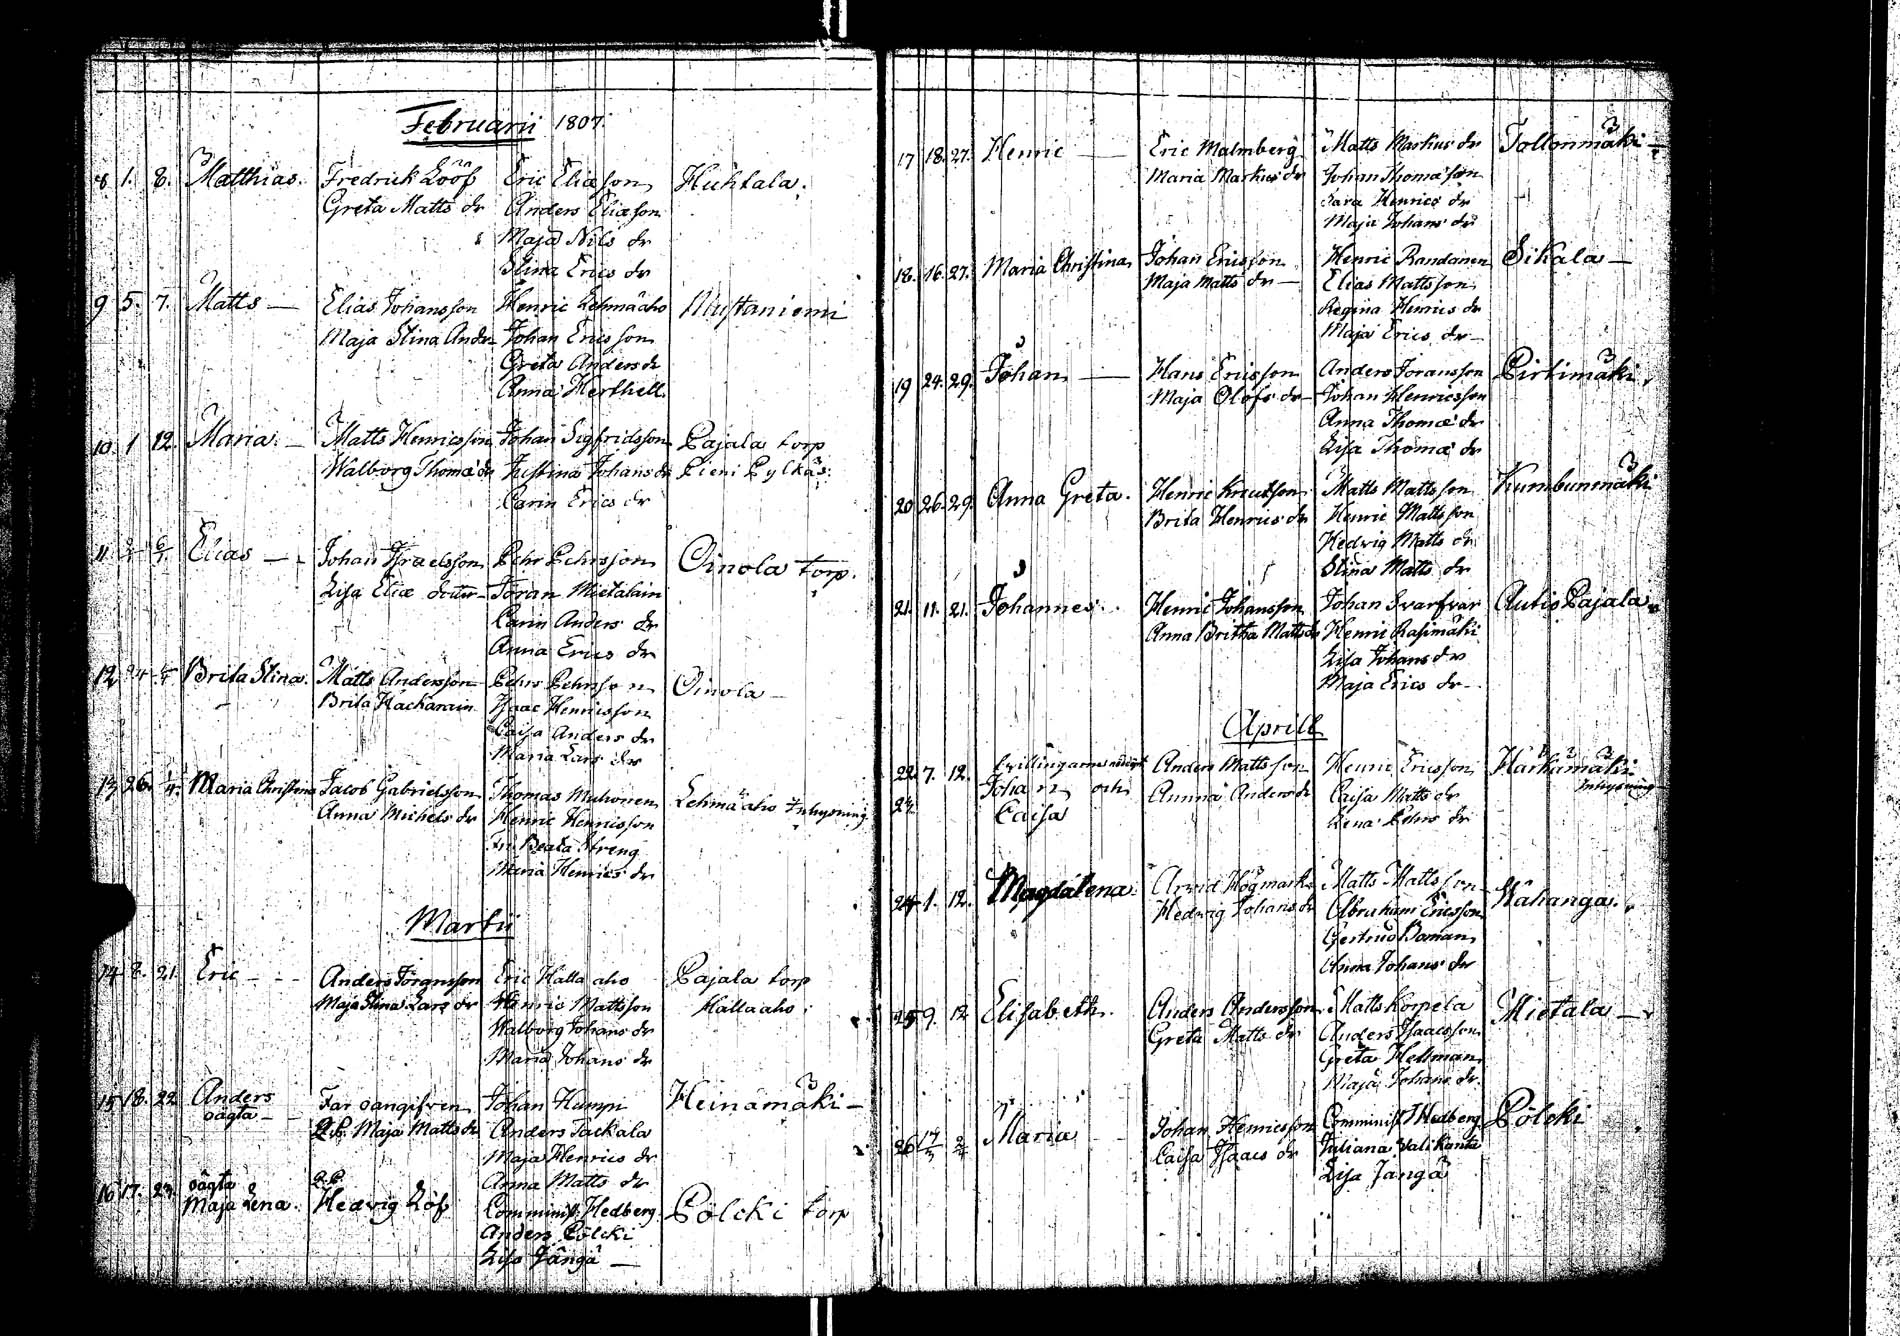 Februarii 1807.
8 1. 8. Matthias. Fredrick Lööf Eric Eliæson Huhtala.
Greta Matts dr Anders Eliæson
Maja Nils dr
Stina Erics dr
9 5. 7. Matts — Elias Johansson Henric Lehmäaho Mustaniemi
Maja Stina Andr Johan Ericsson
Greta Anders dr
Anna Herthell
10. 1 12. Maria. — Matts Henricsson Johan Sigfridsson Pajala torp
Walborg Thomæ dr Justina Johans dr Pieni Pylkäs:
Carin Erics dr
11 Elias — Johan Israelsson Pehr Pehrsson Oinola torp.
Lisa Eliæ dotter Jöran Mietalain
Carin Anders dr
Anna Erics dr
12 Brita Stina. Matts Andersson Pehr Pehrsson Oinola —
Brita Hackarain Isaac Henricsson
Caisa Anders dr
Maria Lars dr
13 26. Maria Christina Jacob Gabrielsson Thomas Muhoinen Lehmäaho Inhysning
Anna Michels dr Henric Henricsson
Beata Streng
Maria Henrics dr
Martii
14 8. 21. Eric — Anders Jörgensson Eric Hällaaho Pajala torp
Maja Stina Lars dr Henric Mattsson Hällaaho.
Walborg Johans dr
Maria Johans dr
15 18. 22 Anders Far oangifven Johan Humpi Heinämäki —
oägta — Q.P. Maja Matts dr Anders Tackala
Maja Henrics dr
Anna Matts dr
16 17. 23. oägta Q.P.
Maja Lena. Hedvig Löf Comminist. Hedberg Pölcki torp
Anders Pölcki
Lisa Jångå —
17 18. 27. Henric — Eric Malmberg Matts Markus dr Tollonmäki —
Maria Markus dr Johan Thomæson
Sara Henrics dr
Maja Johans dr
18. 16. 27. Maria Christina Johan Ericsson Henric Randanen Sikala —
Maja Matts dr — Elias Mattsson
Regina Henrics dr
Maja Erics dr —
19 24. 29. Johan — Hans Ericsson Anders Joransson Pirtimäki.
Maja Olofs dr — Johan Henricsson
Anna Thomæ dr
Lisa Thomæ dr
20 26. 29. Anna Greta. Henric Knutson Matts Mattsson Kumbunmäki
Brita Henrics dr Henric Mattsson
Hedvig Matts dr
Stina Matts dr
21. 11. 21. Johannes. Henric Johansson Johan Svarfvar Autio Pajala
Anna Britha Matts dr Henric Rasimäki
Lisa Johans dr
Maja Erics dr —
Aprill
22. 7. 12. tvillingarne Anders Mattsson Henric Ericsson Härkämäki
23 Johan och Annna Anders dr Caisa Matts dr inhysning
Caisa Lena Pehrs dr
24 1. 12. Magdalena. Arvid Högmark Matts Mattsson Kahanga.
Hedwig Johans dr Abraham Ericsson
Gertrud Boman
Anna Johans dr
25 9. 12 Elisabeth. Anders Andersson Matts Korpela Mietala —
Greta Matts dr Anders Isaacsson
Greta Hellman
Maja Johans dr.
26 Maria Johan Henricsson Comminist Hedberg Pölcki
Caisa Isaacs dr Juliana Valikanta
Lisa Jangå